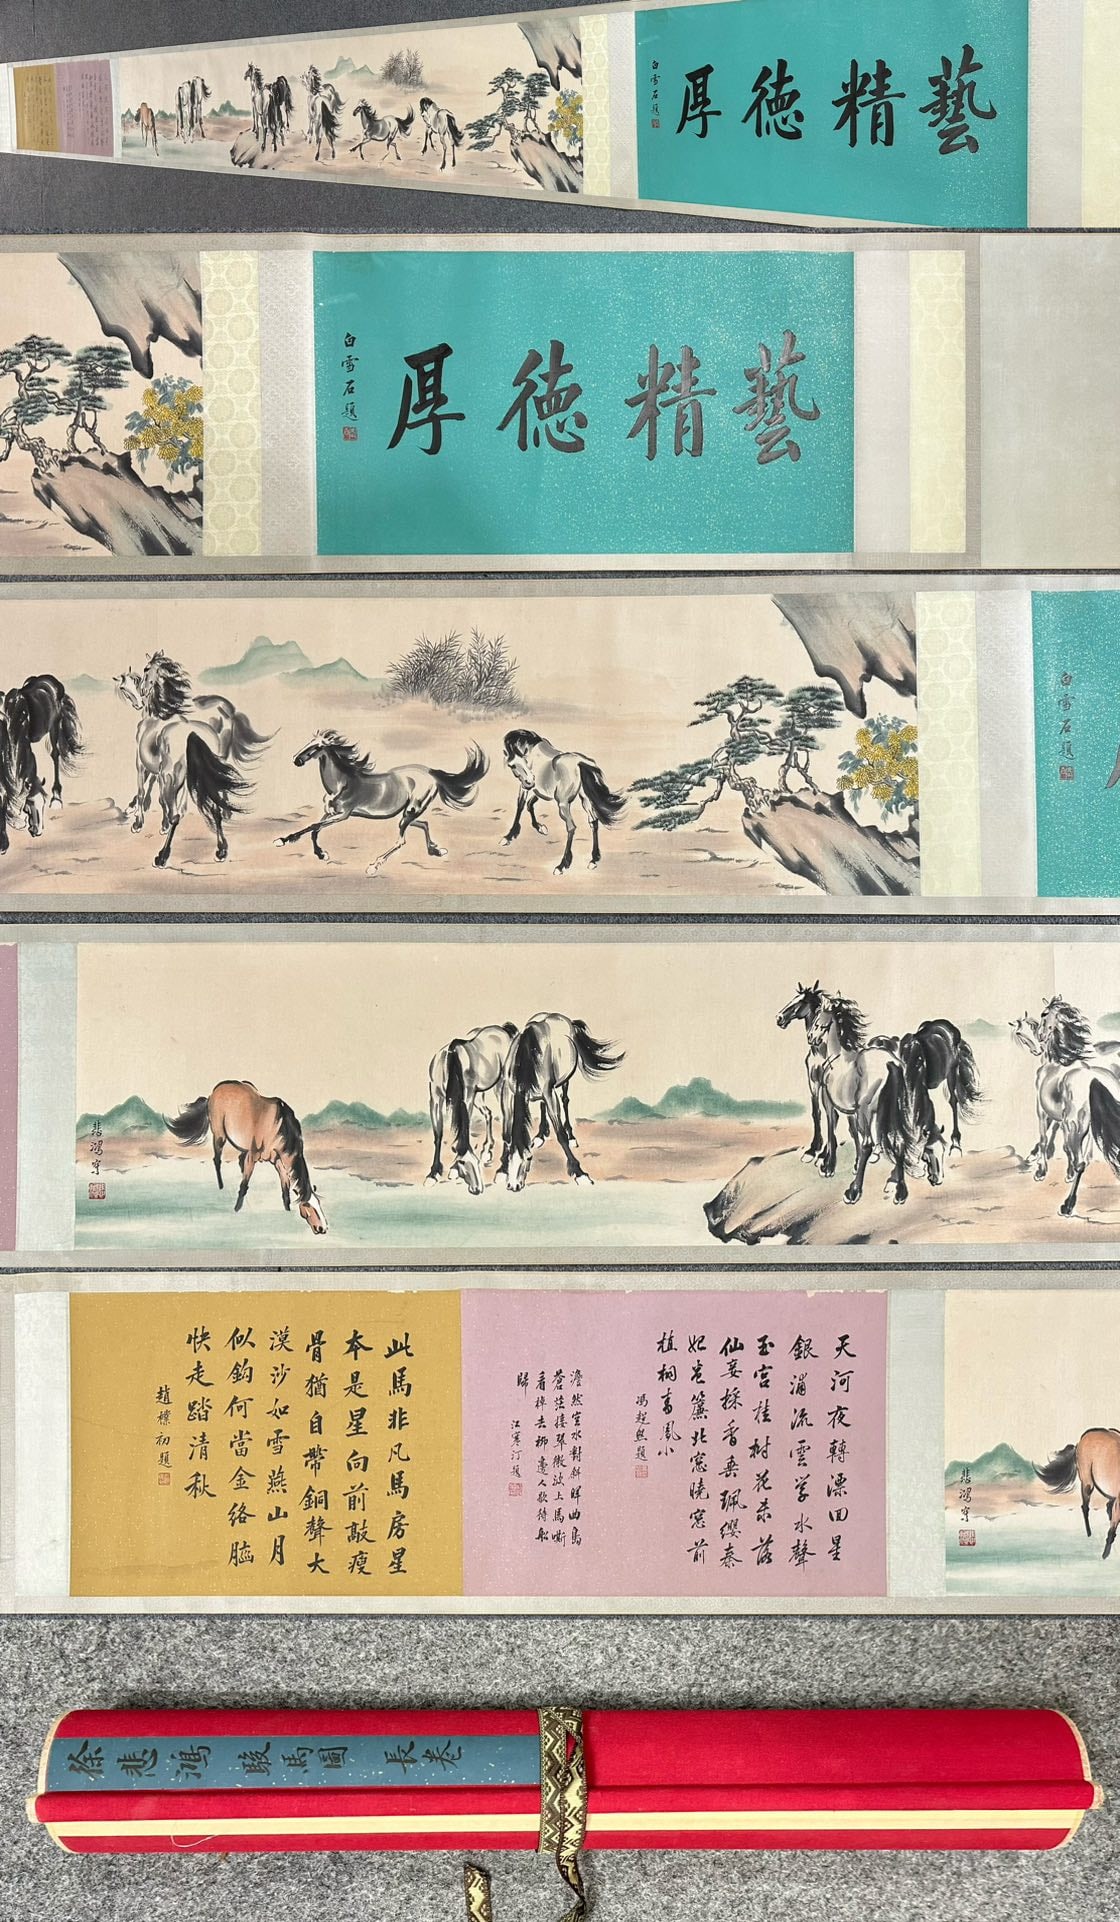 藝精德厚
白雪石題
藝精德厚
白雪石題
白雪石題
悲鴻寫
天河夜轉漂回星
銀浦流雲學水聲
玉宮桂樹花未落
仙妾採香垂珮纓秦
妃卷簾北窓曉窓前
植桐青鳳小
馮超然題
澹然空水對斜暉曲島
蒼茫接翠微波上馬嘶
看棹去柳邊人歇待船
歸
江寒汀題
此馬非凡馬房星
本是星向前敲瘦
骨猶自帶銅聲大
漠沙如雪燕山月
似鈎何當金絡腦
快走踏清秋
趙樸初題
悲鴻寫
徐悲鴻 駿馬圖 長卷